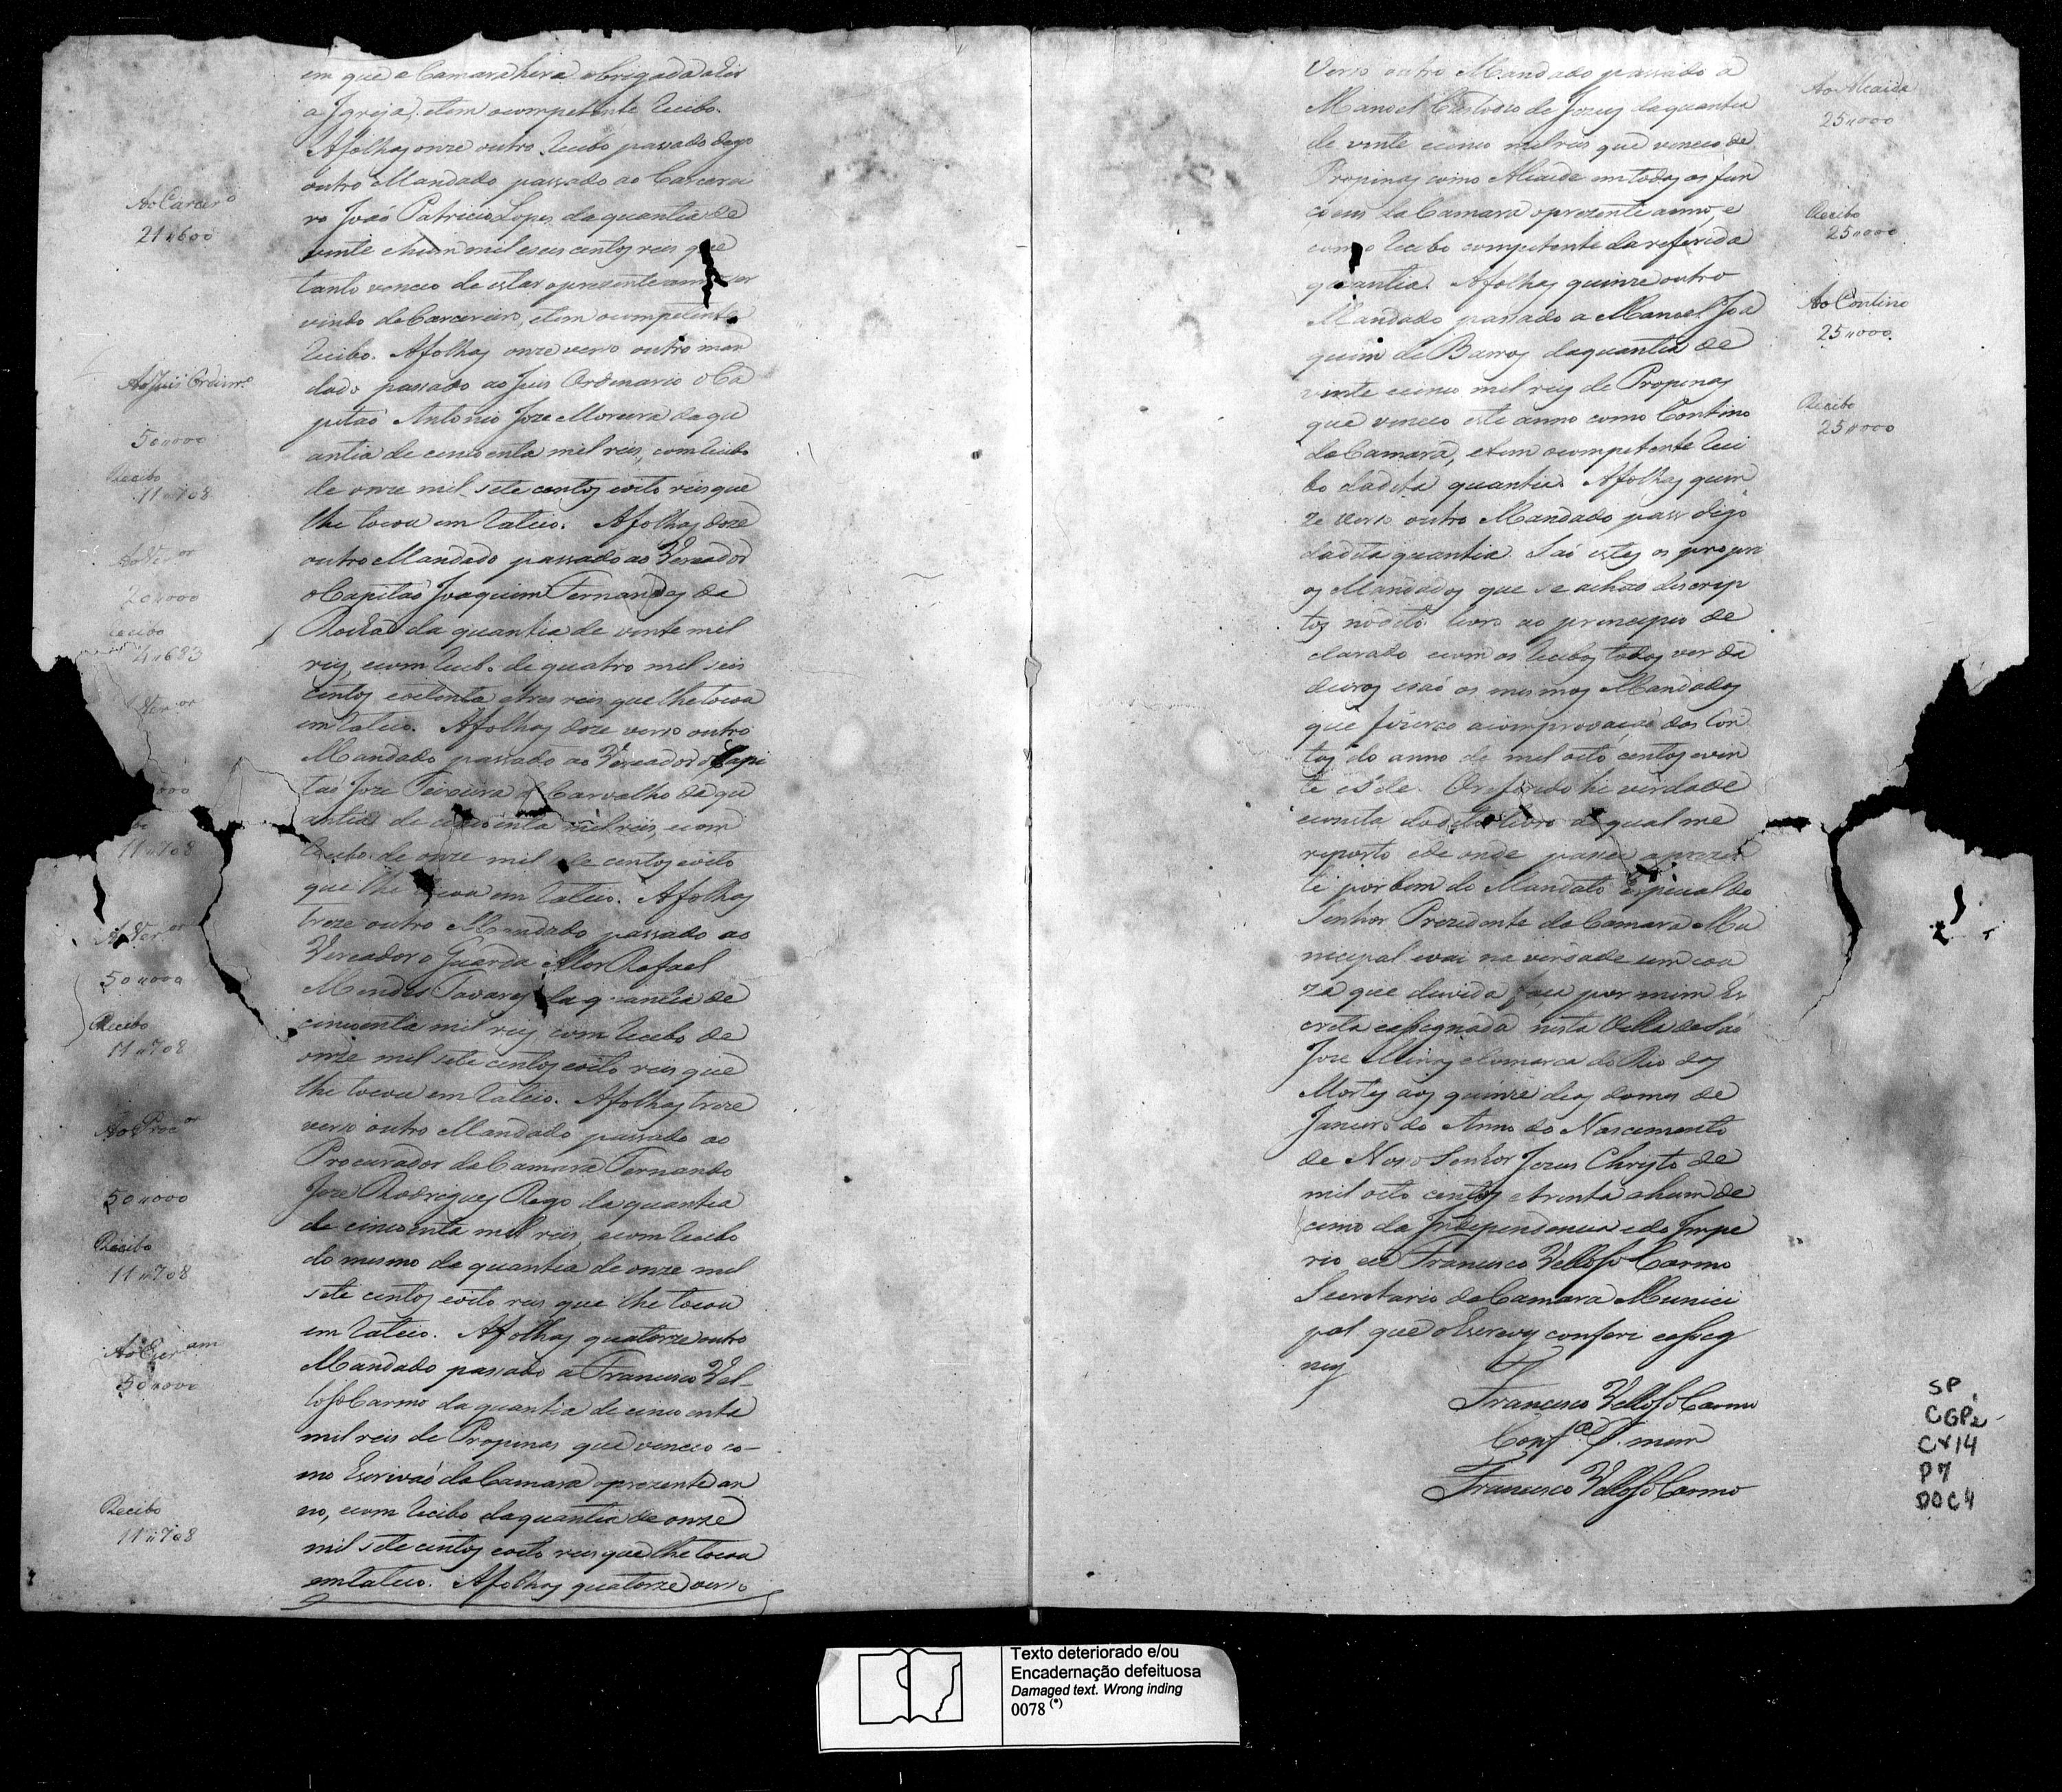 em que a Camara hera obrigada a ter
a Igreja, e tem o competente Recibo.
A folhas onze outro Recibo passado digo
outro Mandado passado ao Carcerei
Ao Carcer.o
21"600
ro João Patricio Lopes da quantia de
vinte e hum mil e seis centos reis que
tanto venceo de estar o prezente anno ser
vindo de Carcereiro, e tem o competente
Recibo. A folhas onze verso outro man
Ao Juis Ordinr.o
50"000
Recibo
11"708
dado passado ao Juis Ordinario o Ca
pitão Antonio Joze Moreira da qu
antia de cincoenta mil reis, com Recibo
de onze mil sete centos e oito reis que
lhe tocou em Rateio. A folhas doze
Ao Ver.or
20"000
Recibo
4"683
outro Mandado passado ao Vereador
o Capitão Joaquim Fernandes da
Rocha da quantia de vinte mil
reis, e com Recibo de quatro mil seis
centos e oitenta e tres reis que lhe tocou
em Rateio. A folhas doze verso outro
Ver.or
000
11"708
Mandado passado ao Vereador o Capi
tão Joze Teixeira de Carvalho da qu
antia de cincoenta mil reis, e com
Recibo de onze mil sete centos e oito
que lhe tocou em Rateio. A folhas
treze outro Mandado passado ao
Ao Ver.or
50"000
Recibo
11"708
Vereador o Guarda Mor Rafael
Mendes Tavares da quantia de
cincoenta mil reis, com Recibo de
onze mil sete centos e oito reis que
lhe tocou em Rateio. A folhas treze
verso outro Mandado passado ao
Ao Proc.or
50"000
Recibo
11"708
Procurador da Camara Fernando
Joze Rodrigues Rego da quantia
de cincoenta mil reis, e com Recibo
do mesmo da quantia de onze mil
sete centos e oito reis que lhe tocou
em Rateio. A folhas quatorze outro
Ao Escr.am
50"000
Mandado passado a Francisco Vel-
lozo Carmo da quantia de cincoenta
mil reis de Propinas que venceo co-
mo Escrivão da Camara o prezente an
Recibo
11"708
no, e com Recibo da quantia de onze
mil sete centos e oito reis que lhe tocou
em Rateio. A folhas quatorze verso
Verso outro Mandado passado a
Ao Alcaide
25"000
Manoel Custodio de Jezus da quantia
de vinte e cinco mil reis que venceo de
Propinas como Alcaide em todas as fun
Recibo
25"000
çoens da Camara o prezente anno, e
com o Recibo competente da referida
quantia. A folhas quinze outro
Ao Contino
25"000
Mandado passado a Manoel Joa
quim de Barros da quantia de
vinte e cinco mil reis de Propinas
Recibo
25"000
que venceo este anno como Contino
da Camara, e tem o competente Reci
bo da dita quantia. A folhas quin
ze verso outro Mandado pass digo
da dita quantia. São estes os propri
os Mandados que se achão descrip
tos no dito livro ao principio de
clarado e com os Recibos todos verda
deiros e são os mesmos Mandados
que fizerão a comprovação das Con
tas do anno de mil oito centos e vin
te e sete. O referido he verdade
e consta do dito livro ao qual me
reporto e de onde passei a prezen
te por bem do Mandato Especial do
Senhor Prezidente da Camara Mu
nicipal e vai na verdade sem cou
za que duvida faça por mim Es
crita e assignada nesta Villa de São
Joze Minas e Comarca do Rio das
Mortes aos quinze dias do mes de
Janeiro do Anno do Nascimento
de Noso Senhor Jezus Christo de
mil oito centos e trinta e hum de
cimo da Independencia e do Impe
rio eu Francisco Vellozo Carmo
Secretario da Camara Munici
pal que o Escrevy conferi e assig
ney
Francisco Vellozo Carmo
Conf.e P. mim
Francisco Vellozo Carmo
SP
CGP2
CX14
P7
DOC4
Texto deteriorado e/ou
Encadernação defeituosa
Damaged text. Wrong inding
0078 (*)